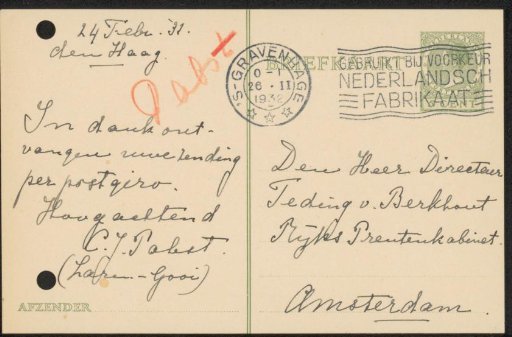 24 Febr. 32.
den Haag.
Pabst
In dank ont-
vangen uwe zending
per postgiro.
Hoogachtend
C. J. Pabst.
(Laren-Gooi)
AFZENDER
BRIEFKAART
'S-GRAVENHAGE
26 · II
1932
GEBRUIKT BIJ VOORKEUR
NEDERLANDSCH
FABRIKAAT
Den Heer Directeur
Teding v. Berkhout
Rijks Prentenkabinet.
Amsterdam.